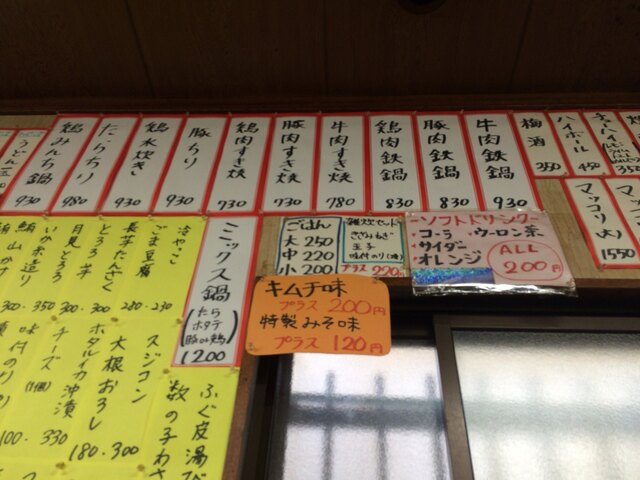 うどん玉
鶏みんち鍋 930
たらちり 980
鶏水炊き 930
豚ちり 930
鶏肉すき焼 730
豚肉すき焼 730
牛肉すき焼 780
鶏肉鉄鍋 830
豚肉鉄鍋 830
牛肉鉄鍋 930
梅酒 350
ハイボール 450
チューハイ
350
マッコリ(大) 1550
マッコリ
ごはん
大 250
中 220
小 200
雑炊セット
きざみねぎ
玉子
味付のり(1枚)
プラス 220円
ソフトドリンク
コーラ ・ウーロン茶
サイダー
オレンジ
ALL
200円
キムチ味
プラス 200円
特製みそ味
プラス 120円
ミックス鍋
(たら
ホタテ
豚or鶏)
1200
冷やっこ 230
ごま豆腐 280
長芋たんざく 300
とろろ芋 300
月見とろろ 350
いか糸造り 300
鮪山かけ
スジコン
大根おろし 300
ホタルイカ沖漬 180
チーズ(1個) 330
味付のり
100
ふぐ皮湯び
数の子わさ